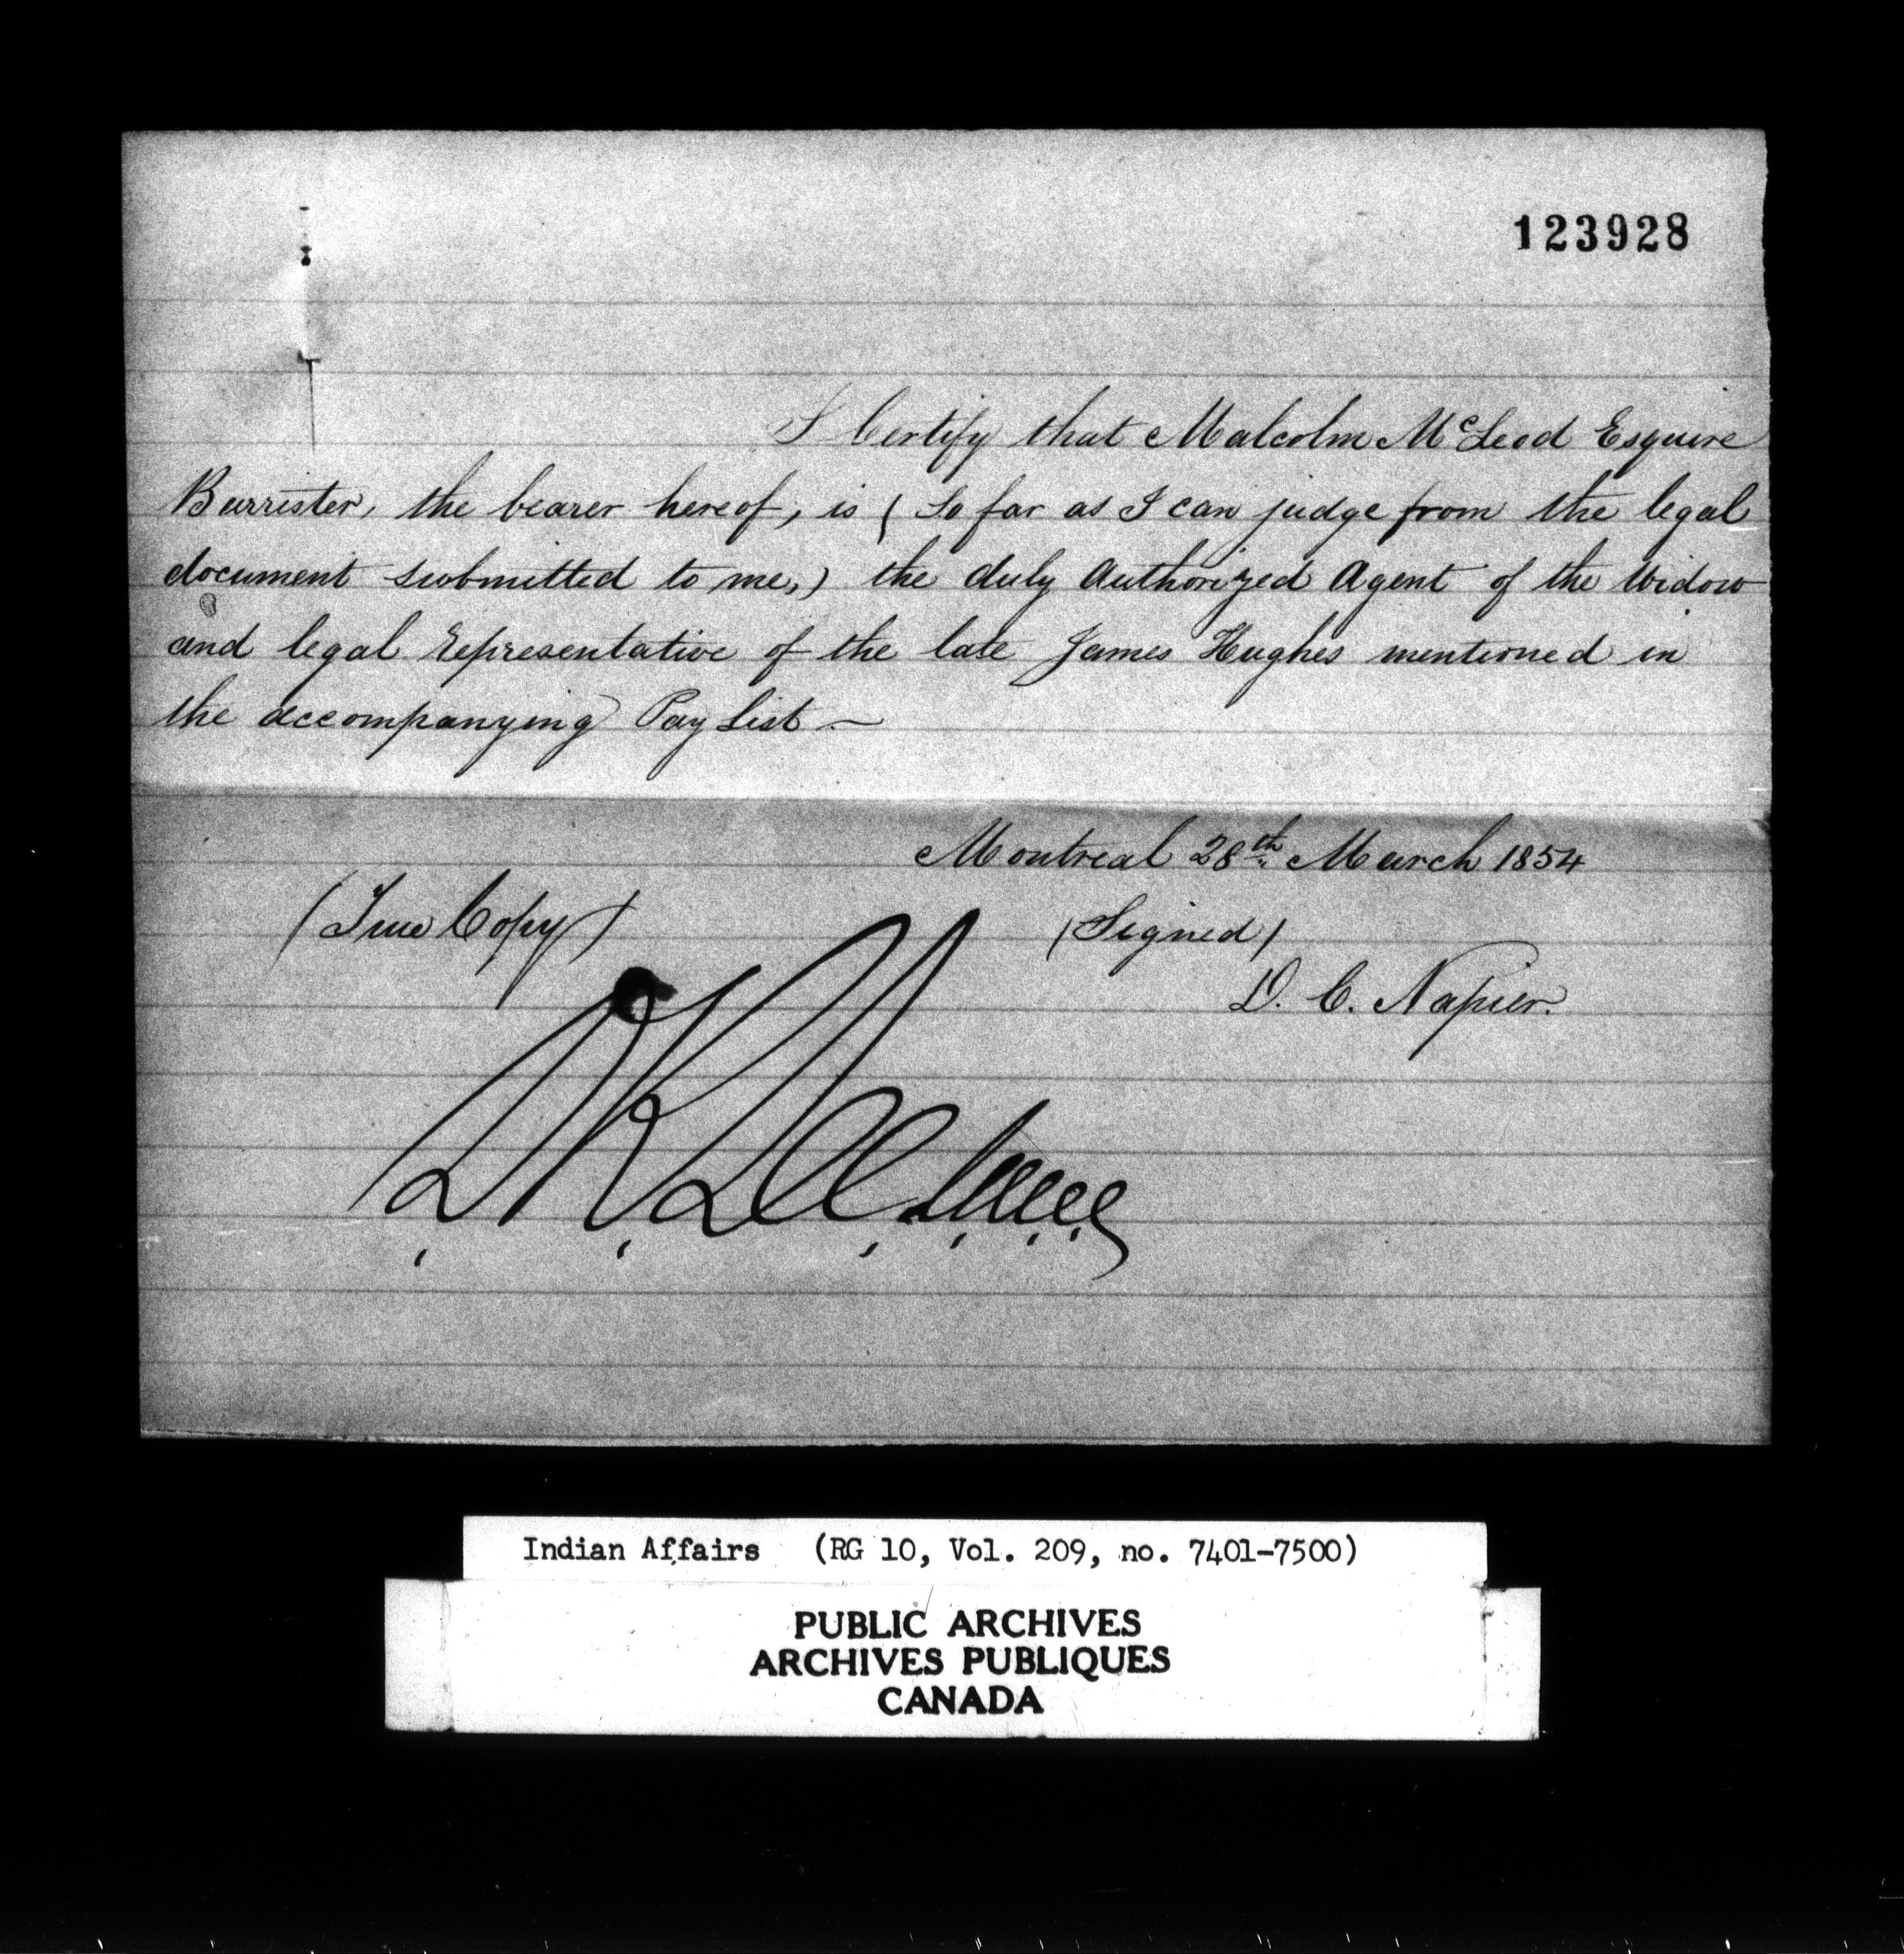 123928
I Certify that Malcolm McLeod Esquire
Barrister, the bearer hereof, is ( so far as I can judge from the legal
document submitted to me,) the duly Authorized Agent of the Widow
and legal representative of the late James Hughes mentioned in
the accompanying Pay List —
Montreal 28th March 1854
(True Copy) (Signed)
D. C. Napier.
Indian Affairs (RG 10, Vol. 209, no. 7401-7500)
PUBLIC ARCHIVES
ARCHIVES PUBLIQUES
CANADA